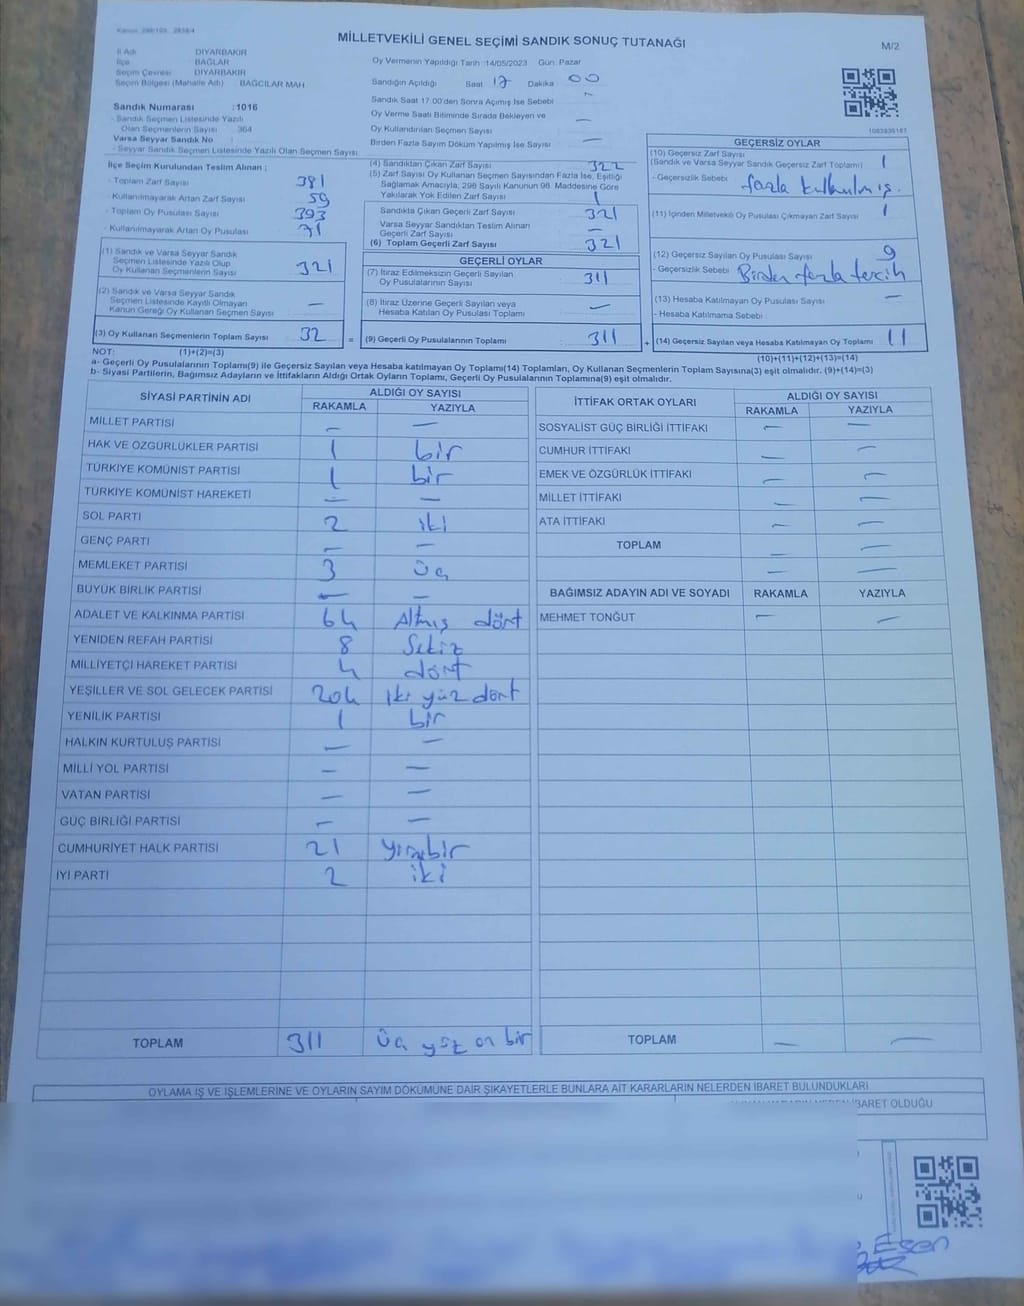 Kanun 298/105 2839/4
MİLLETVEKİLİ GENEL SEÇİMİ SANDIK SONUÇ TUTANAĞI
M/2
İl Adı DİYARBAKIR
İlçe BAĞLAR
Seçim Çevresi DİYARBAKIR
Seçim Bölgesi (Mahalle Adı) BAĞCILAR MAH
Oy Vermenin Yapıldığı Tarih :14/05/2023 Gün: Pazar
Sandığın Açıldığı Saat 17 Dakika 00
Sandık Saat 17:00'den Sonra Açımış İse Sebebi —
Oy Verme Saati Bitiminde Sırada Bekleyen ve
Oy Kullandırılan Seçmen Sayısı —
Birden Fazla Sayım Döküm Yapılmış İse Sayısı —
Sandık Numarası :1016
- Sandık Seçmen Listesinde Yazılı
Olan Seçmenlerin Sayısı 364
Varsa Seyyar Sandık No :
- Seyyar Sandık Seçmen Listesinde Yazılı Olan Seçmen Sayısı
İlçe Seçim Kurulundan Teslim Alınan ;
- Toplam Zarf Sayısı 381
- Kullanılmayarak Artan Zarf Sayısı 59
- Toplam Oy Pusulası Sayısı 393
- Kullanılmayarak Artan Oy Pusulası 71
(1) Sandık ve Varsa Seyyar Sandık
Seçmen Listesinde Yazılı Olup
Oy Kullanan Seçmenlerin Sayısı 321
(2) Sandık ve Varsa Seyyar Sandık
Seçmen Listesinde Kayıtlı Olmayan
Kanun Gereği Oy Kullanan Seçmen Sayısı —
(3) Oy Kullanan Seçmenlerin Toplam Sayısı 32
(4) Sandıktan Çıkan Zarf Sayısı 322
(5) Zarf Sayısı Oy Kullanan Seçmen Sayısından Fazla İse, Eşitliği
Sağlamak Amacıyla, 298 Sayılı Kanunun 98. Maddesine Göre
Yakılarak Yok Edilen Zarf Sayısı 1
Sandıkta Çıkan Geçerli Zarf Sayısı 321
Varsa Seyyar Sandıktan Teslim Alınan
Geçerli Zarf Sayısı —
(6) Toplam Geçerli Zarf Sayısı 321
GEÇERLİ OYLAR
(7) İtiraz Edilmeksizin Geçerli Sayılan
Oy Pusulalarının Sayısı 311
(8) İtiraz Üzerine Geçerli Sayılan veya
Hesaba Katılan Oy Pusulası Toplamı —
= (9) Geçerli Oy Pusulalarının Toplamı : 311
1083936167
GEÇERSİZ OYLAR
(10) Geçersiz Zarf Sayısı
(Sandık ve Varsa Seyyar Sandık Geçersiz Zarf Toplamı) 1
- Geçersizlik Sebebi : fazla kullanılmış.
(11) İçinden Milletvekili Oy Pusulası Çıkmayan Zarf Sayısı 1
(12) Geçersiz Sayılan Oy Pusulası Sayısı 9
- Geçersizlik Sebebi : Birden fazla tercih
(13) Hesaba Katılmayan Oy Pusulası Sayısı —
- Hesaba Katılmama Sebebi :
+ (14) Geçersiz Sayılan veya Hesaba Katılmayan Oy Toplamı 11
NOT: (1)+(2)=(3)
(10)+(11)+(12)+(13)=(14)
a- Geçerli Oy Pusulalarının Toplamı(9) ile Geçersiz Sayılan veya Hesaba katılmayan Oy Toplamı(14) Toplamları, Oy Kullanan Seçmenlerin Toplam Sayısına(3) eşit olmalıdır. (9)+(14)=(3)
b- Siyasi Partilerin, Bağımsız Adayların ve İttifakların Aldığı Oyların Toplamı, Geçerli Oy Pusulalarının Toplamına(9) eşit olmalıdır.
SİYASİ PARTİNİN ADI ALDIĞI OY SAYISI
RAKAMLA YAZIYLA
MİLLET PARTİSİ — —
HAK VE ÖZGÜRLÜKLER PARTİSİ 1 bir
TÜRKİYE KOMÜNİST PARTİSİ 1 bir
TÜRKİYE KOMÜNİST HAREKETİ — —
SOL PARTİ 2 iki
GENÇ PARTİ — —
MEMLEKET PARTİSİ 3 üç
BÜYÜK BİRLİK PARTİSİ — —
ADALET VE KALKINMA PARTİSİ 64 Altmış dört
YENİDEN REFAH PARTİSİ 8 Sekiz
MİLLİYETÇİ HAREKET PARTİSİ 4 dört
YEŞİLLER VE SOL GELECEK PARTİSİ 204 iki yüz dört
YENİLİK PARTİSİ 1 bir
HALKIN KURTULUŞ PARTİSİ — —
MİLLİ YOL PARTİSİ — —
VATAN PARTİSİ — —
GÜÇ BİRLİĞİ PARTİSİ — —
CUMHURİYET HALK PARTİSİ 21 yirmibir
İYİ PARTİ 2 iki
TOPLAM 311 üç yüz on bir
İTTİFAK ORTAK OYLARI ALDIĞI OY SAYISI
RAKAMLA YAZIYLA
SOSYALİST GÜÇ BİRLİĞİ İTTİFAKI — —
CUMHUR İTTİFAKI — —
EMEK VE ÖZGÜRLÜK İTTİFAKI — —
MİLLET İTTİFAKI — —
ATA İTTİFAKI — —
TOPLAM — —
— —
BAĞIMSIZ ADAYIN ADI VE SOYADI RAKAMLA YAZIYLA
MEHMET TONĞUT — —
TOPLAM — —
OYLAMA İŞ VE İŞLEMLERİNE VE OYLARIN SAYIM DÖKÜMÜNE DAİR ŞİKAYETLERLE BUNLARA AİT KARARLARIN NELERDEN İBARET BULUNDUKLARI
İBARET OLDUĞU
Esen